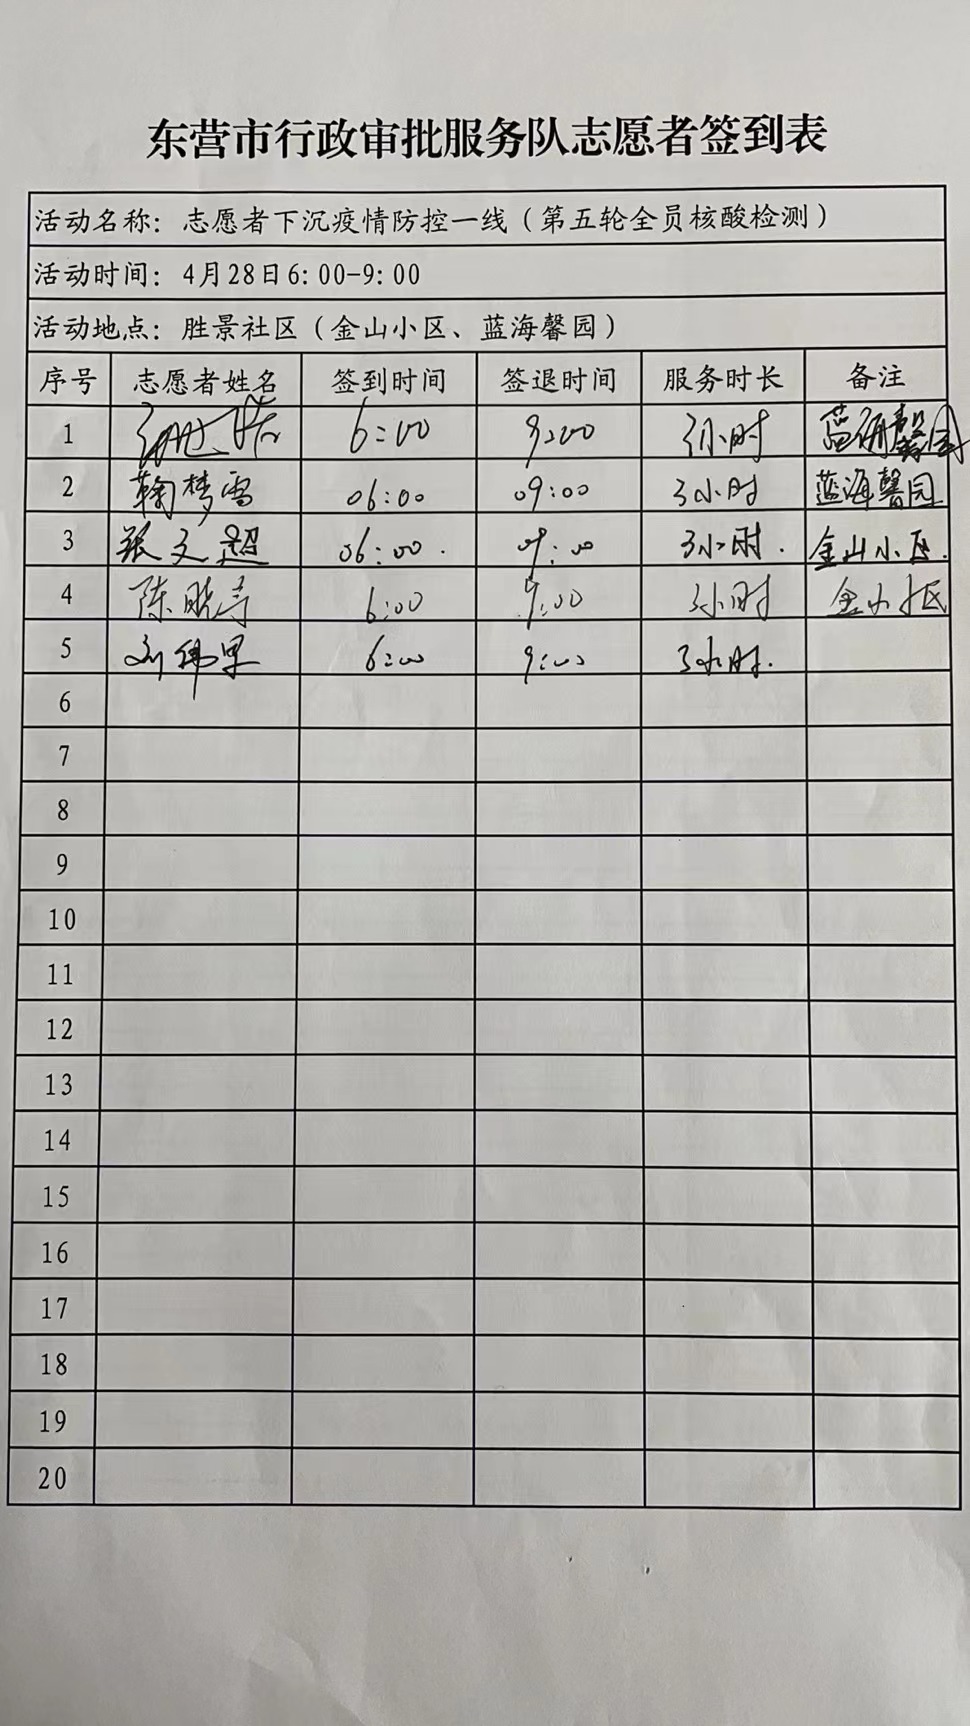 东营市行政审批服务队志愿者签到表
活动名称：志愿者下沉疫情防控一线（第五轮全员核酸检测）
活动时间：4月28日6：00-9：00
活动地点：胜景社区（金山小区、蓝海馨园）
序号 志愿者姓名 签到时间 签退时间 服务时长 备注
1 6:00 9:00 3小时 蓝海馨园
2 鞠梦雪 06:00 09:00 3小时 蓝海馨园
3 张文超 06:00. 09:00 3小时. 金山小区.
4 陈晓 6:00 9:00 3小时 金山小区
5 刘伟 6:00 9:00 3小时.
6
7
8
9
10
11
12
13
14
15
16
17
18
19
20